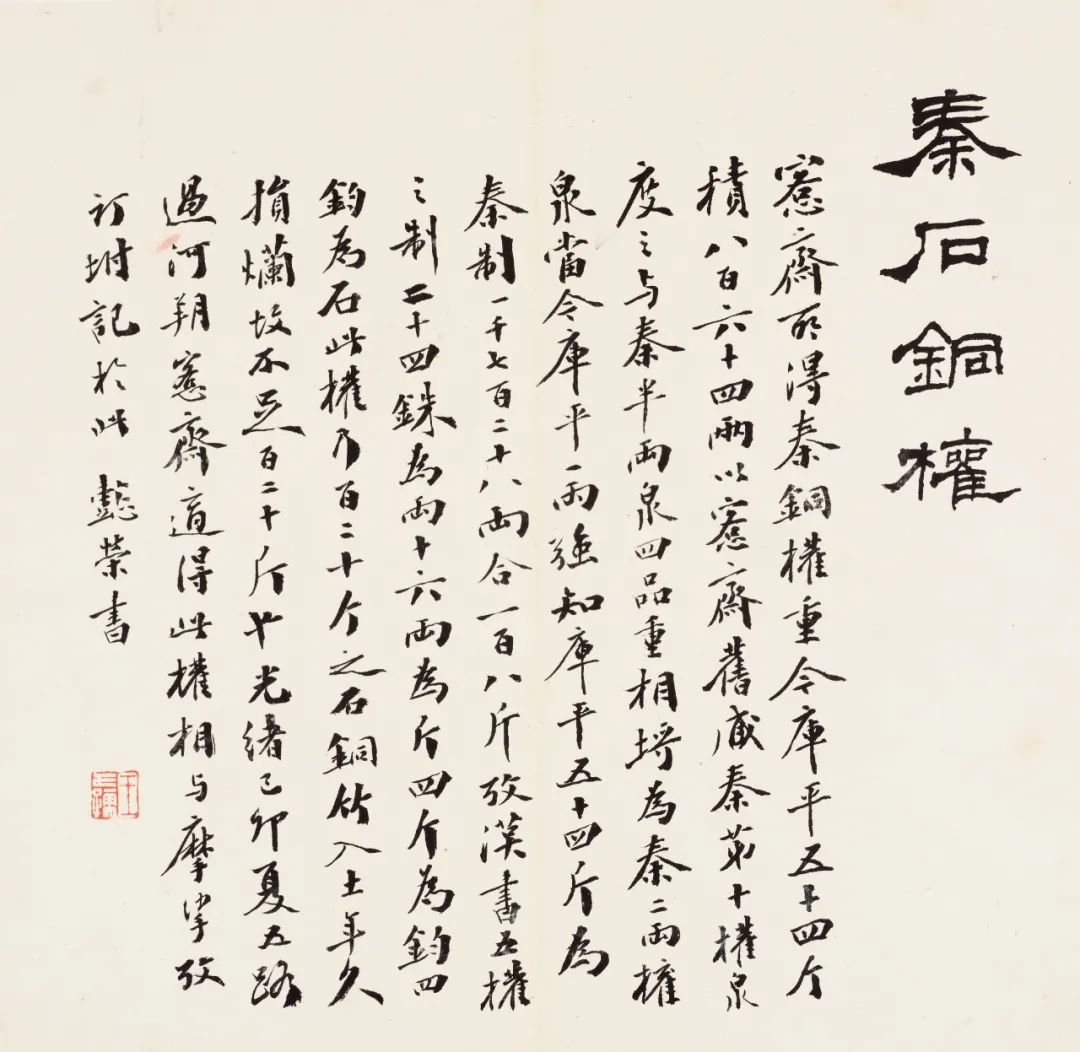 秦石銅權
愙齋所得秦銅權重今庫平五十四斤
積八百六十四兩以愙齋舊臧秦苐十權泉
度之与秦半兩泉四品重相埒為秦二兩權
泉當今庫平一兩強知庫平五十四斤為
秦制一千七百二十八兩合一百八斤攷漢書五權
之制二十四銖為兩十六兩為斤四斤為鈞四
鈞為石此權乃百二十斤之石銅入土年久
損爛故不足百二十斤也光緒己卯夏五路
過河朔愙齋適得此權相与摩挲攷
訂坿記於此 懿榮書